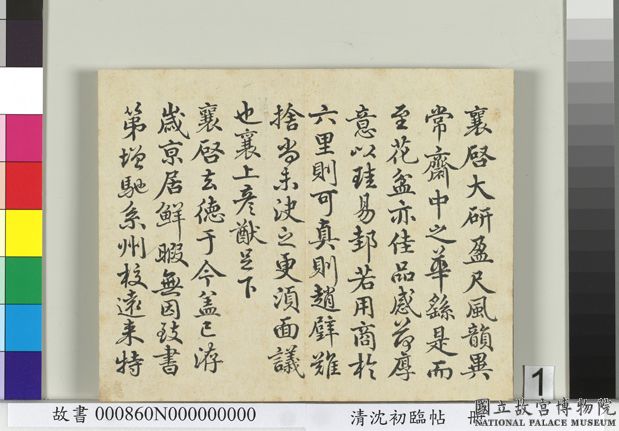 襄啓大研盈尺風韻異
常齋中之華繇是而
至花盆亦佳品感荷厚
意以珪易邽若用商於
六里則可真則趙璧難
捨尚未決之更須面議
也襄上彥猷足下
襄啓去德于今蓋已洊
歲京居鮮暇無因致書
第增馳系州校遠来特
1
故書 000860N000000000
清沈初臨帖 冊
國立故宮博物院
NATIONAL PALACE MUSEUM